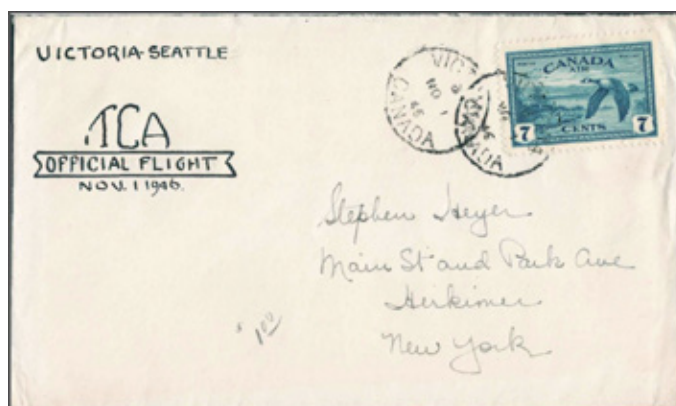 VICTORIA-SEATTLE
TCA
OFFICIAL FLIGHT
NOV. 1 1946.
VIC
NO 1
46
CANADA
46
CANADA
AIR
7 CENTS 7
Stephen Heyer
Main St and Park Ave
Herkimer
New York
1 00